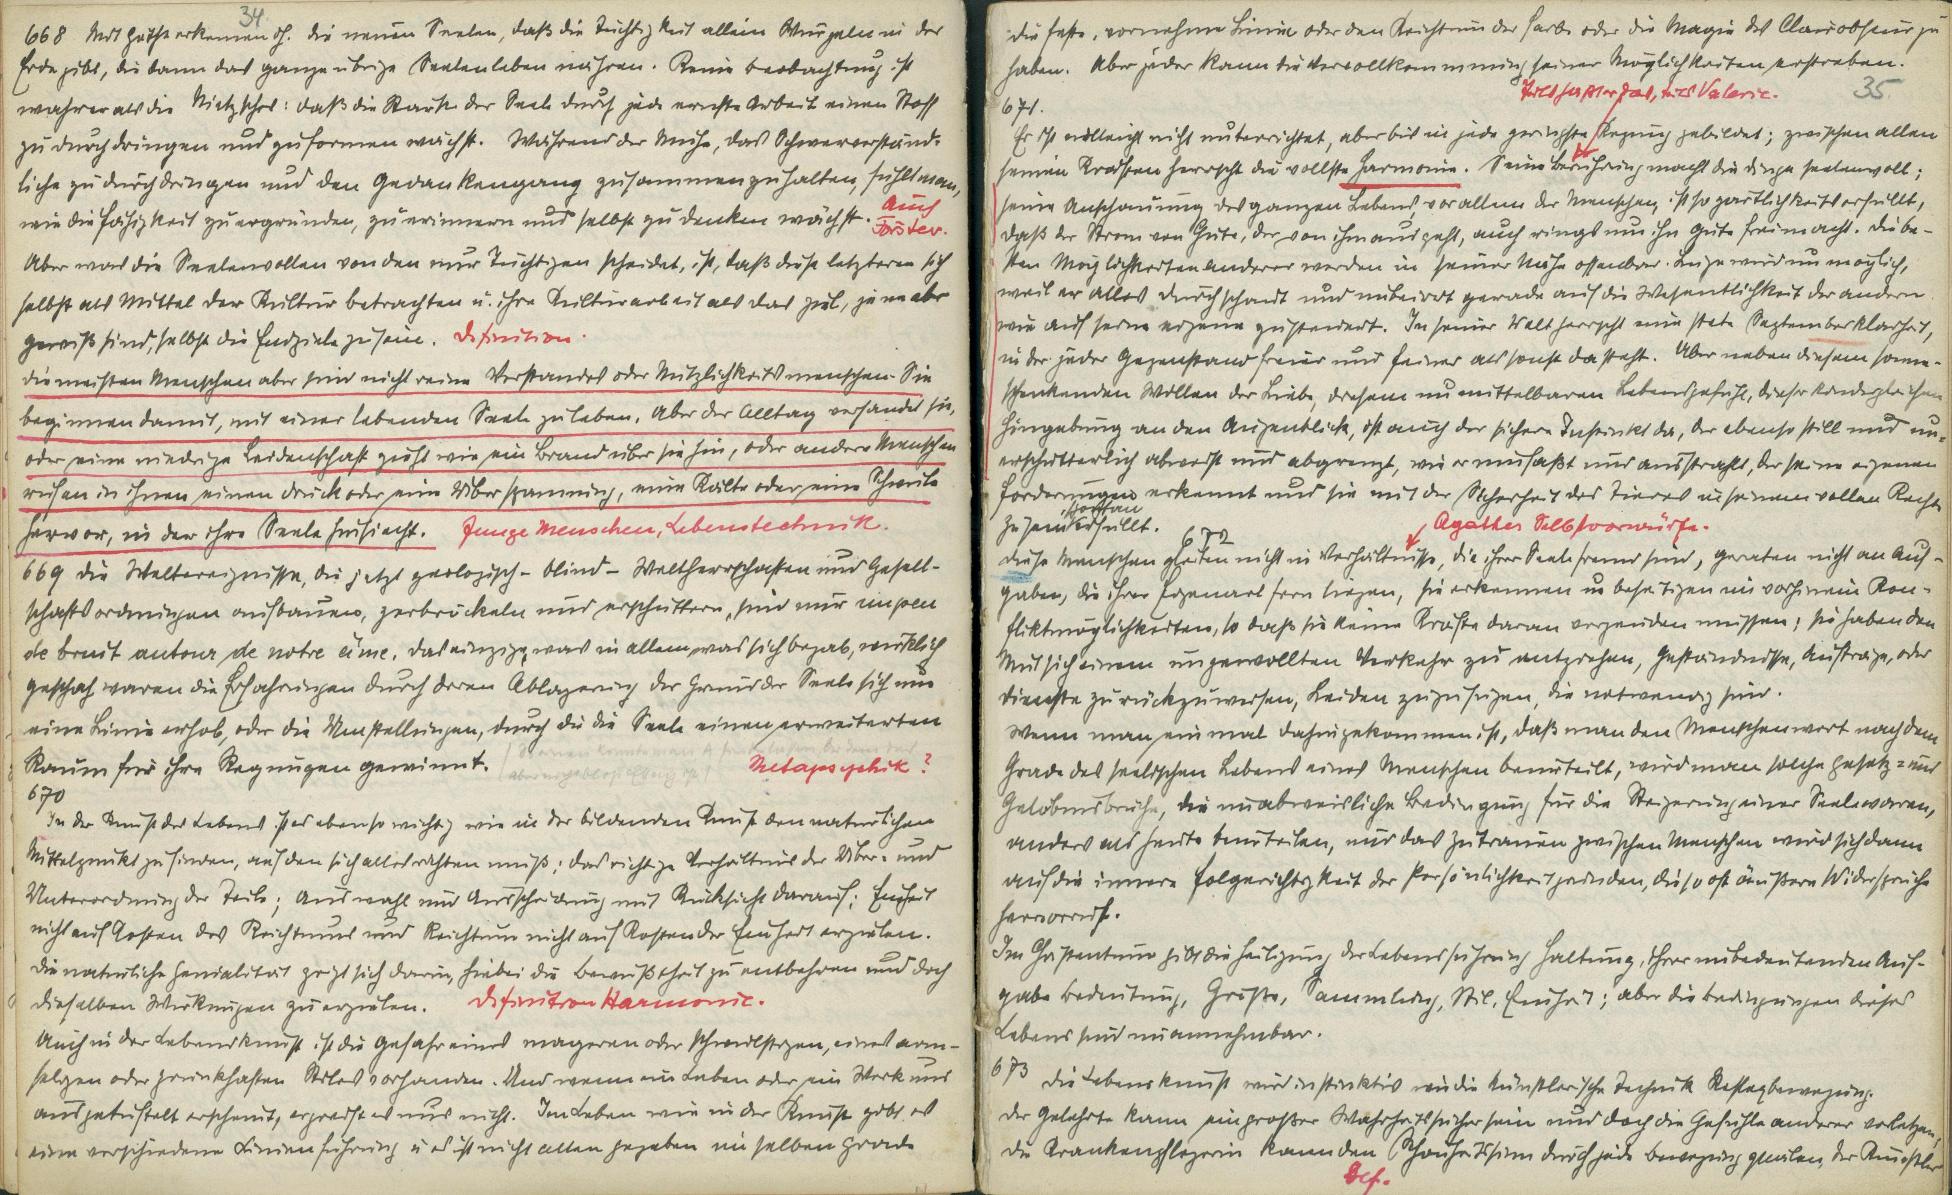 34
668 Mit Goethe erkennen sf. die neuen Seelen, daß die Tüchtigkeit allein Wurzeln in der
Erde gibt, die dann das ganze übrige Seelenleben nähren. Keine Beobachtung ist
wahrer als die Nietzsches: daß die Stärke der Seele durch jede ernste Arbeit einen Stoff
zu durchdringen und zu formen wächst. Während der Mühe, das Schwerverständ-
liche zu durchdringen und den Gedankengang zusammenzuhalten, fühlt man,
wie die Fähigkeit zu ergründen, zu erinnern und selbst zu denken wächst. Auch
Förster.
Aber was die Seelenvollen von den nur Tüchtigen scheidet, ist, daß diese letzteren sich
selbst als Mittel der Kultur betrachten u. ihre Kulturarbeit als das Ziel, jene aber
gewiß sind, selbst die Endziele zu sein. Definition.
Die meisten Menschen aber sind nicht reine Verstandes oder Nützlichkeitsmenschen. Sie
beginnen damit, mit einer lebenden Seele zu leben. Aber der Alltag versandet sie,
oder eine niedrige Leidenschaft zieht wie ein Brand über sie hin, oder andere Menschen
rufen in ihnen einen Druck oder eine Überspannung, eine Kälte oder eine Schwüle
hervor, in der ihre Seele hinsiecht. Junge Menschen, Lebenstechnik.
669 Die Weltereignisse, die jetzt geologisch – blind – Weltherrschaften und Gesell-
schaftsordnungen aufbauen, zerbröckeln und erschüttern, sind nur un peu
de bruit autour de notre âme. Das einzige, was in allem, was sich begab, wirklich
geschah waren die Erfahrungen durch deren Ablagerung der Grund der Seele sich um
eine Linie erhob, oder die Umstellungen, durch die die Seele einen erweiterten
Raum für ihre Regungen gewinnt. Metapsychik?
670
In der Kunst des Lebens ist es ebenso wichtig wie in der bildenden Kunst den natürlichen
Mittelpunkt zu finden, auf den sich alles richten muß; das richtige Verhältnis der Über- und
Unterordnung der Teile; Auswahl und Ausscheidung mit Rücksicht darauf; Einheit
nicht auf Kosten des Reichtums und Reichtum nicht auf Kosten der Einheit erzielen.
Die natürliche Genialität zeigt sich darin, hiebei die Bewußtheit zu entbehren und doch
dieselben Wirkungen zu erzielen. Definition Harmonie.
Auch in der Lebenskunst ist die Gefahr eines mageren oder schwulstigen, eines arm-
seligen oder prunkhaften Stiles vorhanden. Und wenn ein Leben oder ein Werk uns
ausgetüftelt erscheint, ergreift es uns nicht. Im Leben wie in der Kunst gibt es
eine verschiedene Linienführung u es ist nicht allen gegeben im selben Grade
die feste, vornehme Linie oder den Reichtum der Farbe oder die Magie des Clairobscur zu
haben. Aber jeder kann die Vervollkommnung seiner Möglichkeiten erstreben.
35
Valerie.
671.
Er ist vielleicht nicht unterrichtet, aber bis in jede geringste Regung gebildet; zwischen allen
seinen Kräften herrscht die vollste Harmonie. Seine Berührung macht die Dinge seelenvoll;
seine Anschauung des ganzen Lebens, vor allem der Menschen, ist so zärtlichkeitserfüllt,
daß der Strom von Güte, der von ihm ausgeht, auch rings um ihn Güte frei macht. Die be-
sten Möglichkeiten anderer werden in seiner Nähe offenbar. Lüge wird unmöglich,
weil er alles durchschaut und unbeirrt gerade auf die Wesentlichkeit der andern
wie auf seine eigene zusteuert. In seiner Welt herrscht eine stete Septemberklarheit,
in der jeder Gegenstand freier und feiner als sonst dasteht. Aber neben diesem sonne-
schenkenden Wollen der Liebe, diesem unmittelbaren Lebensgefühl, dieser kindergleichen
Hingebung an den Augenblick, ist auch der sichere Instinkt da, der ebenso still und un-
erschütterlich abweist und abgrenzt, wie er umfaßt und ausstrahlt, der seine eigenen
Forderungen erkennt und sie mit der Sicherheit des Tieres in seinem vollen Recht
zu sein erfüllt. Agathes Selbstvorwürfe.
672
Diese Menschen gleiten nicht in Verhältnisse, die ihrer Seele fremd sind, geraten nicht an Auf-
gaben, die ihrer Eigenart fern liegen, sie erkennen u beseitigen im vorhinein Kon-
fliktmöglichkeiten, so daß sie keine Kräfte daran vergeuden müssen; sie haben den
Mut sich einem ungewollten Verkehr zu entziehen, Geständnisse, Aufträge, oder
Dienste zurückzuweisen, Leiden zuzufügen, die notwendig sind.
Wenn man einmal dahin gekommen ist, daß man den Menschenwert nach dem
Grade des seelischen Lebens eines Menschen beurteilt, wird man solche Gesetz- und
Gelöbnisbrüche, die unabweisliche Bedingung für die Steigerung einer Seele waren,
anders als heute beurteilen, und das Zutrauen zwischen Menschen wird sich dann
auf die innere Folgerichtigkeit der Persönlichkeit gründen, die so oft äußere Widersprüche
hervorruft.
Im Christentum gibt die Heiligung der Lebensführung Haltung, ihrer unbedeutenden Auf-
gabe Bedeutung, Größe, Sammlung, Stil, Einheit; aber die Bedingungen dieses
Lebens sind unannehmbar.
673
Die Lebenskunst wird instinktiv wie die künstlerische Technik Reflexbewegung.
Der Gelehrte kann ein großer Wahrheitssucher sein und doch die Gefühle anderer verletzen,
die Krankenpflegerin kann den Schönheitssinn durch jede Bewegung quälen, der Künstler
Def.